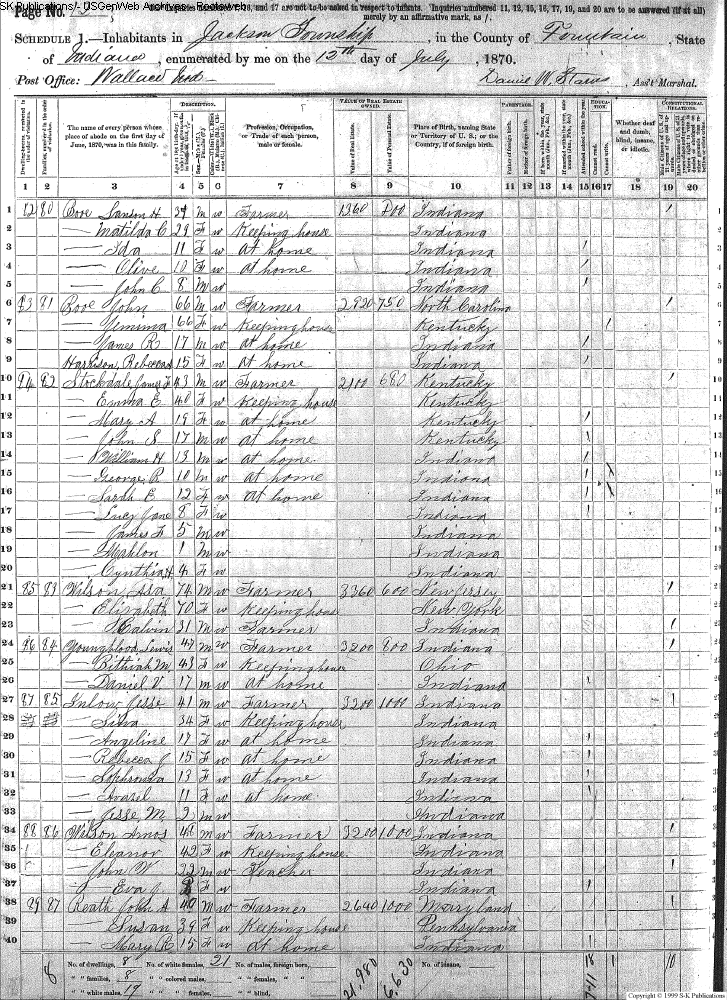 SK Publications/ - USGenWeb Archives - Rootsweb
Page No. 13
Inquiries numbered 7, 16, and 17 are not to be asked in respect to infants. Inquiries numbered 11, 12, 15, 16, 17, 19, and 20 are to be answered (if at all)
merely by an affirmative mark, as /.
SCHEDULE 1.—Inhabitants in Jackson Township, in the County of Fountain, State
of Indiana, enumerated by me on the 13th day of July, 1870.
Post Office: Wallace Ind Daniel W. Ass't Marshal.
DESCRIPTION. VALUE OF REAL ESTATE OWNED PARENTAGE. EDUCATION. CONSTITUTIONAL RELATIONS.
The name of every person whose place of abode on the first day of June, 1870, was in this family.
Profession, Occupation, or Trade of each person, male or female.
Value of Real Estate.
Value of Personal Estate.
Place of Birth, naming State or Territory of U. S.; or the Country, if of foreign birth.
Father of foreign birth.
Mother of foreign birth.
Attended school within the year.
Cannot read.
Cannot write.
Whether deaf and dumb, blind, insane, or idiotic.
1 2 3 4 5 6 7 8 9 10 11 12 13 14 15 16 17 18 19 20
1 82 80 Booe H 29 M W Farmer 1360 Indiana /
2 — Matilda C 29 F W Keeping house Indiana
3 — Ida 11 F W at home Indiana /
4 — Olive 10 F W at home Indiana /
5 — John C 8 M W Indiana /
6 83 81 Booe John 66 M W Farmer 2920 750 North Carolina /
7 — Jemima 66 F W Keeping house Kentucky /
8 — James R 17 M W at home Indiana /
9 Harrison, Rebecca 15 F W at home Indiana /
10 84 82 Stockdale James F 43 M W Farmer 2100 680 Kentucky /
11 — Emma E 40 F W Keeping house Kentucky
12 — Mary A 19 F W at home Kentucky /
13 — John S 17 M W at home Kentucky /
14 — William H 13 M W at home Indiana /
15 — George R 10 M W at home Indiana /
16 — Sarah E 12 F W at home Indiana /
17 — Lucy Jane 8 F W Indiana /
18 — James F 5 M W Indiana
19 — Mahlon 1 M W Indiana
20 — Cynthia H 4 F W Indiana
21 85 83 Wilson Asa 74 M W Farmer 3360 600 New Jersey /
22 — Elizabeth 70 F W Keeping house New York
23 — Calvin 31 M W Farmer Indiana /
24 86 84 Youngblood Lewis 47 M W Farmer 3200 800 Indiana /
25 — Bithiah M 43 F W Keeping house Ohio
26 — Daniel V. 17 M W at home Indiana /
27 87 85 Inlow Jesse 41 M W Farmer 3200 1000 Indiana /
28 — 34 F W Keeping house Indiana
29 — Angeline 17 F W at home Indiana /
30 — Rebecca J 15 F W at home Indiana /
31 — Sophronia 13 F W at home Indiana /
32 — 11 F W at home Indiana /
33 — Jesse M. 2 M W Indiana
34 88 86 Wilson Amos 49 M W Farmer 3200 1000 Indiana /
35 — Eleanor 42 F W Keeping house Indiana
36 — John W 22 M W Teacher Indiana /
37 — Eva J F W Indiana /
38 89 87 Reath John A 40 M W Farmer 2640 1000 Maryland /
39 — Susan 39 F W Keeping house Pennsylvania
40 — Mary R 15 F W at home Indiana /
No. of dwellings, 8 No. of white females, 21 No. of males, foreign born, 21,980 6,630 No. of insane, 18 1 10
8 " " families, 8 " " colored males, " " females, " "
" " white males, 19 " " females, " " blind,
Copyright © 1999 S-K Publications